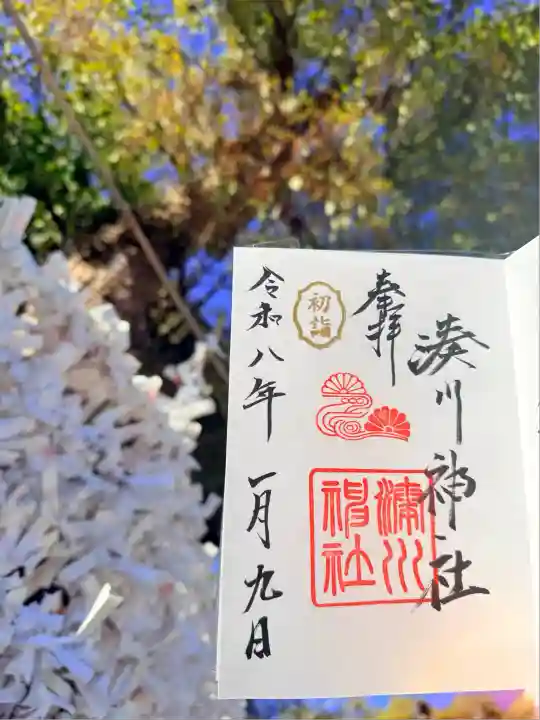 湊川神社
奉拝
初詣
湊川
神社
令和八年 一月九日